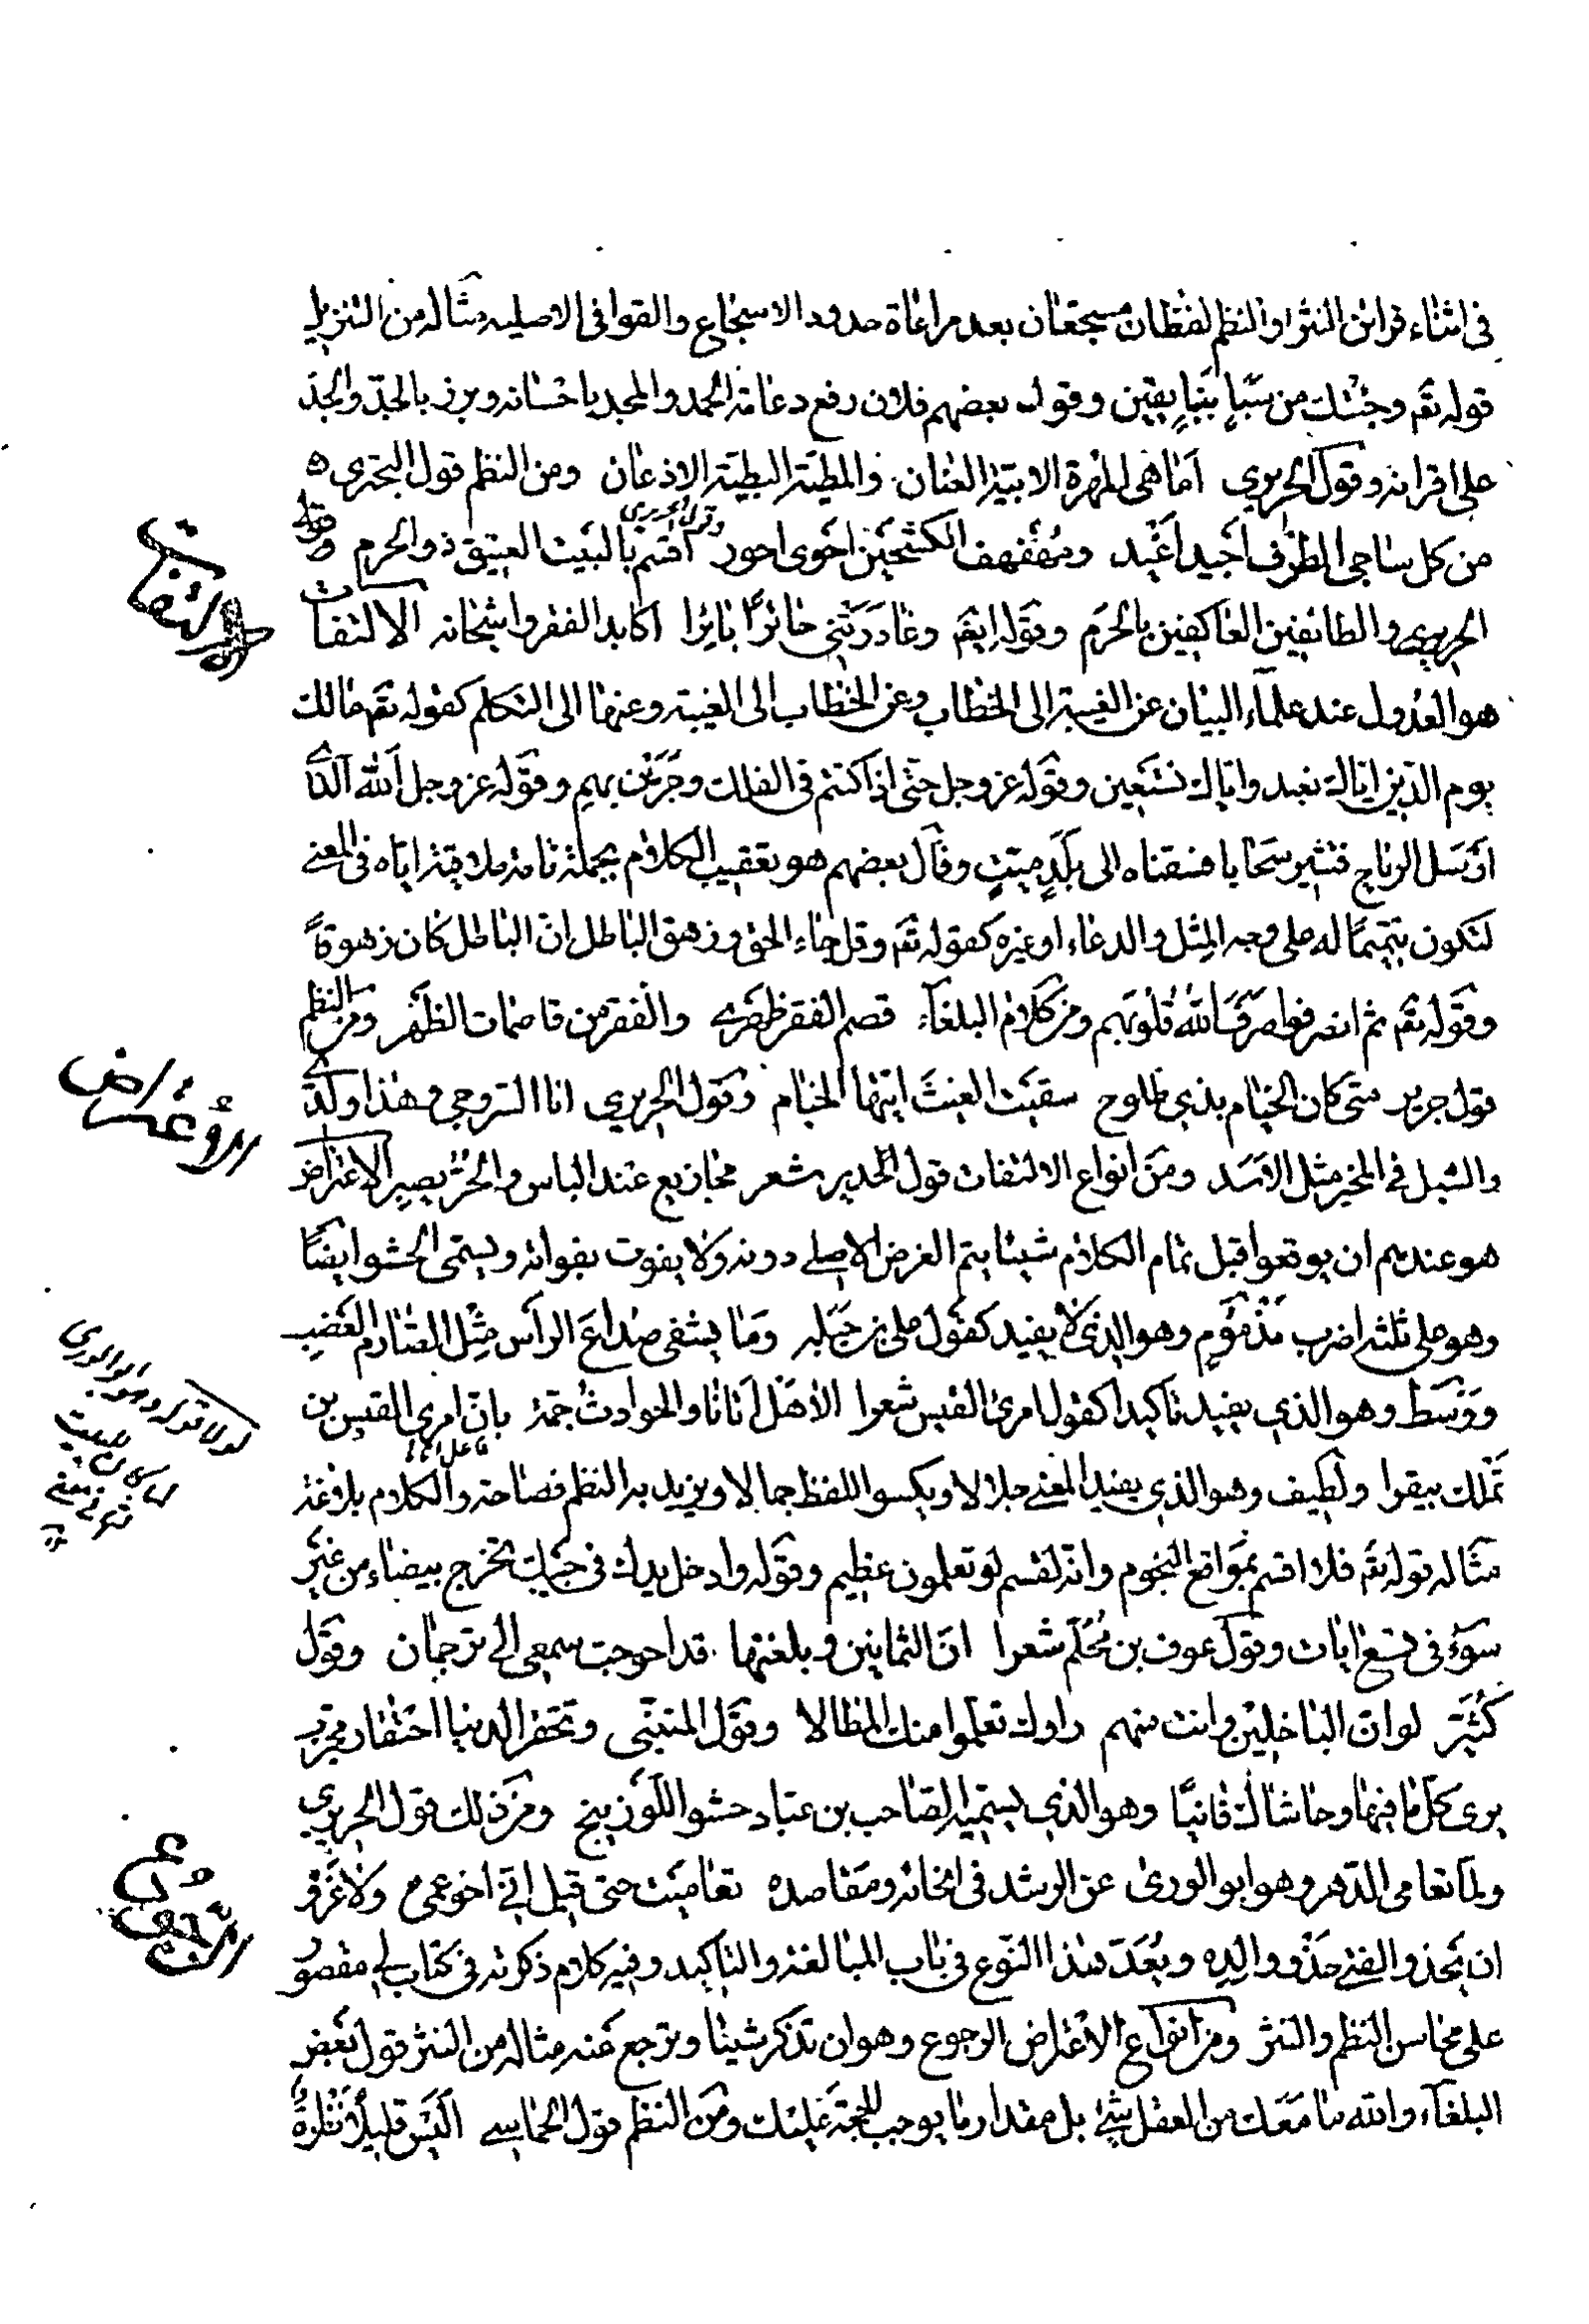 في اثناء قرائن النثر او النظم لفظان مسجعان بعد مراعاة حدود الاسجاع والقوافي الاصلية مثاله من التنزيل
قوله تعم وجئتك من سبإ بنبإ يقين وقول بعضهم فلان رفع دعامة الحمد والمجد باحسانه وبرز بالجد والجد
على اقرانه وقول الحريري اما هي المهرة الابية العنان والمطية البطية الاذعان ومن النظم قول البحتري ه
من كل ساجي الطرف اجيد اغيد ومهفهف الكشحين احوى احور وقول الحريري اقسم بالبيت العتيق ذو الحرم وقول
الحريري والطائفين العاكفين بالحرم وقوله ايضم وغادرتني حائرا بائرا اكابد الفقر واشجانه الالتفات
هو العدول عند علماء البيان عن الغيبة الى الخطاب وعن الخطاب الى الغيبة وعنها الى التكلم كقوله تعم مالك
يوم الدين اياك نعبد واياك نستعين وقوله عز وجل حتى اذا كنتم في الفلك وجرين بهم وقوله عز وجل الله الذي
ارسل الرياح فتثير سحابا فسقناه الى بلد ميت وقال بعضهم هو تعقيب الكلام بجملة تامة ملاقية اياه في المعنى
لتكون تتميما له على وجه المثل والدعاء او غيره كقوله تعم وقل جاء الحق وزهق الباطل ان الباطل كان زهوقا
وقوله تعم ثم انصرفوا صرف الله قلوبهم ومن كلام البلغاء قصم الفقر ظهري والفقر من قاصمات الظهر ومن النظم
قول جرير متى كان الخيام بذي طلوح سقيت الغيث ايتها الخيام وقول الحريري انا السروجي وهذا ولدي
والشبل في المخبر مثل الاسد ومن انواع الالتفات قول شعر مجازيع عند الباس والحر يصبر الاعتراض
هو عندهم ان يوقعوا قبل تمام الكلام شيئا يتم الغرض الاصلي دونه ولا يفوت بفواته ويسمى الحشو ايضا
وهو على ثلثة اضرب مذموم وهو الذي لا يفيد كقول علي بن جبلة وما يشفي صداع الرأس مثل الصارم العضب
ووسط وهو الذي يفيد تاكيدا كقول امرئ القيس شعرا الا هل اتاها والحوادث جمة بان امرئ القيس بن
تملك بيقرا ولطيف وهو الذي يفيد المعنى جلالا ويكسو اللفظ جمالا ويزيد به النظم فصاحة والكلام بلاغة
مثاله قوله تعم فلا اقسم بمواقع النجوم وانه لقسم لو تعلمون عظيم وقوله وادخل يدك في جيبك تخرج بيضاء من غير
سوء في تسع ايات وقول عوف بن محلم شعرا ان الثمانين وبلغتها قد احوجت سمعي الى ترجمان وقول
كثير لو ان الباخلين وانت منهم راوك تعلموا منك المطالا وقول المتنبي وتحقر الدنيا احتقار مجرب
يرى كل ما فيها وحاشاك فانيا وهو الذي يسميه الصاحب بن عباد حشو اللوزينج ومن ذلك قول الحريري
ولما تعامى الدهر وهو ابو الورى عن الرشد في انحائه ومقاصده تعاميت حتى قيل اني اخو عمى ولا غرو
ان يحذو الفتى حذو والده ويعد هذا النوع في باب المبالغة والتاكيد وفيه كلام ذكرته في كتاب لي مقصور
على محاسن النظم والنثر ومن انواع الاعتراض الرجوع وهو ان تذكر شيئا وترجع عنه مثاله من النثر قول بعض
البلغاء والله ما معك من العقل شئ بل مقدار ما يوجب الحجة عليك ومن النظم قول الحماسي اليس قليلا نظرة
الالتفات
الاعتراض
الرجوع